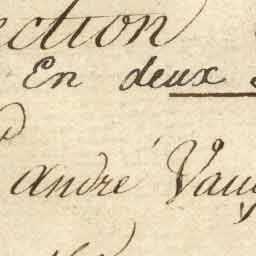 ection
En deux
andré Vau